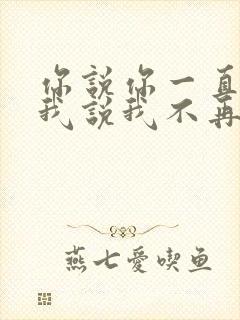 你說你一直
我說我不再
燕七愛喫鱼